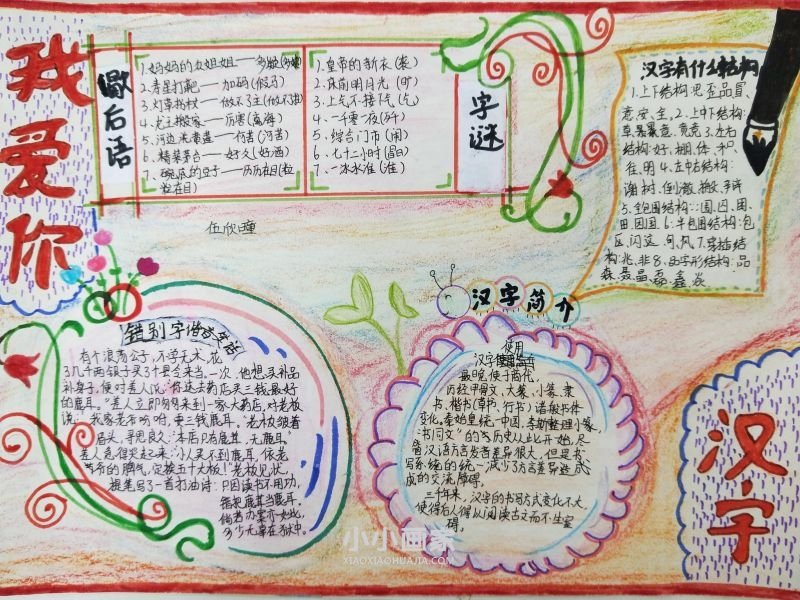 我爱你
歇后语
1.妈妈的大姐姐——多姨(多疑)
2.寿星打靶——加码(假马)
4.龙王搬家——厉害(离海)
5.河边洗黄连——何苦(河苦)
6.精装茅台——好久(好酒)
7.碗底的豆子——历历在目(粒
粒在目)
1.皇帝的新衣(袭)
2.床前明月光(旷)
3.上气不接下气(乞)
4.一千零一夜(歼)
5.综合门市(闹)
6.七十二小时(晶)
7.一水准(淮)
字谜
汉字有什么结构
1.上下结构:思歪品冒
意、安、全、2.上中下结构:
草、暴、意、竟、竞3.左右
结构:好、棚、体、和、
往、明4.左中右结构:
谢、树、倒、澈、搬、辩
5.全包围结构:国、四、困、
田、因、固6.半包围结构:包
区、闪、这、句、风7.穿插结
构:兆、非8.品字形结构:品、
森、聂、晶、磊、鑫、焱
伍欣瞳
错别字谐音笑话
有个浪荡公子,不学无术,花
了几千两银子买了个县令来当。一次,他想买补品
补身子,便对差人说:“你速去药店买三钱最好
的鹿耳。”差人立即匆匆来到一家大药店,对老板
说:“我家老爷吩咐,要三钱鹿耳。”老板皱着
眉头,寻思良久:“本店只有鹿茸,无鹿耳。”
差人急得哭起来:“小人买不到鹿耳,依老
爷爷的脾气,定被五十大板!”老板见状,
提笔写了一首打油诗:只因读书不用功,
错把鹿茸当鹿耳。
倘若办案亦如此,
多少无辜在狱中。
汉字简介
使用
汉字
最晚使于商代,
历经甲骨文、大篆、小篆、隶
书、楷书(草书、行书)诸般书体
变化。秦始皇统一中国,李斯整理小篆,
“书同文”的历史从此开始。尽
管汉语方言发音差异很大,但是书
写系统的统一减少了方言差异造成
成的交流障碍。
三千年来,汉字的书写方式变化不大,
使得后人得以阅读古文而不生窒
碍。
汉字
小小画家
XIAOXIAOHUAJIA.COM